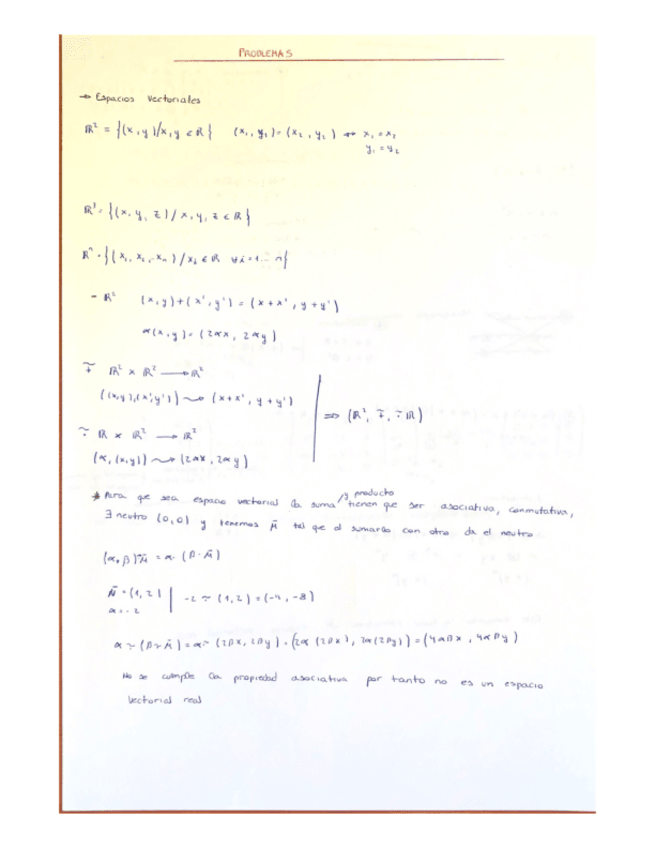 PROBLEMAS
→ Espacios Vectoriales
ℝ² = {(x, y)/x, y ∈ ℝ} (x₁, y₁) = (x₂, y₂) ↔ x₁ = x₂
y₁ = y₂
ℝ³ = {(x, y, z) / x, y, z ∈ ℝ}
ℝⁿ = {(x₁, x₂, .. xₙ) / xᵢ ∈ ℝ ∀i = 1.. n}
- ℝ² (x, y) + (x', y') = (x + x', y + y')
α(x, y) = (2αx, 2αy)
+̃ ℝ² × ℝ² → ℝ²
((x, y), (x', y')) ⤳ (x + x', y + y')
⇒ (ℝ², +̃, ·̃ ℝ)
·̃ ℝ × ℝ² → ℝ²
(α, (x, y)) ⤳ (2αx, 2αy)
* Para que sea espacio vectorial la suma /y producto tienen que ser asociativa, conmutativa,
∃ neutro (0,0) y tenemos tal que al sumarlo con otro da el neutro
= α · (β ·
= (1, 2) | -2 ·̃ (1, 2) = (-4, -8)
α = -2
= α ·̃ (2βx, 2βy) = (2α (2βx), 2α(2βy)) = (4αβx, 4αβy)
No se cumple la propiedad asociativa por tanto no es un espacio
vectorial real